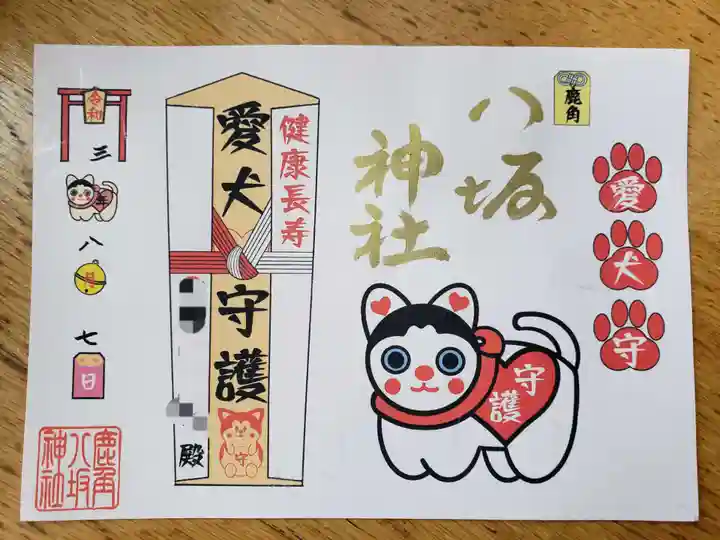 鹿角
八坂
神社
愛
犬
守
守護
健康長寿
愛犬守護
守
殿
令和
三
年
八
月
七
日
鹿角
八坂
神社